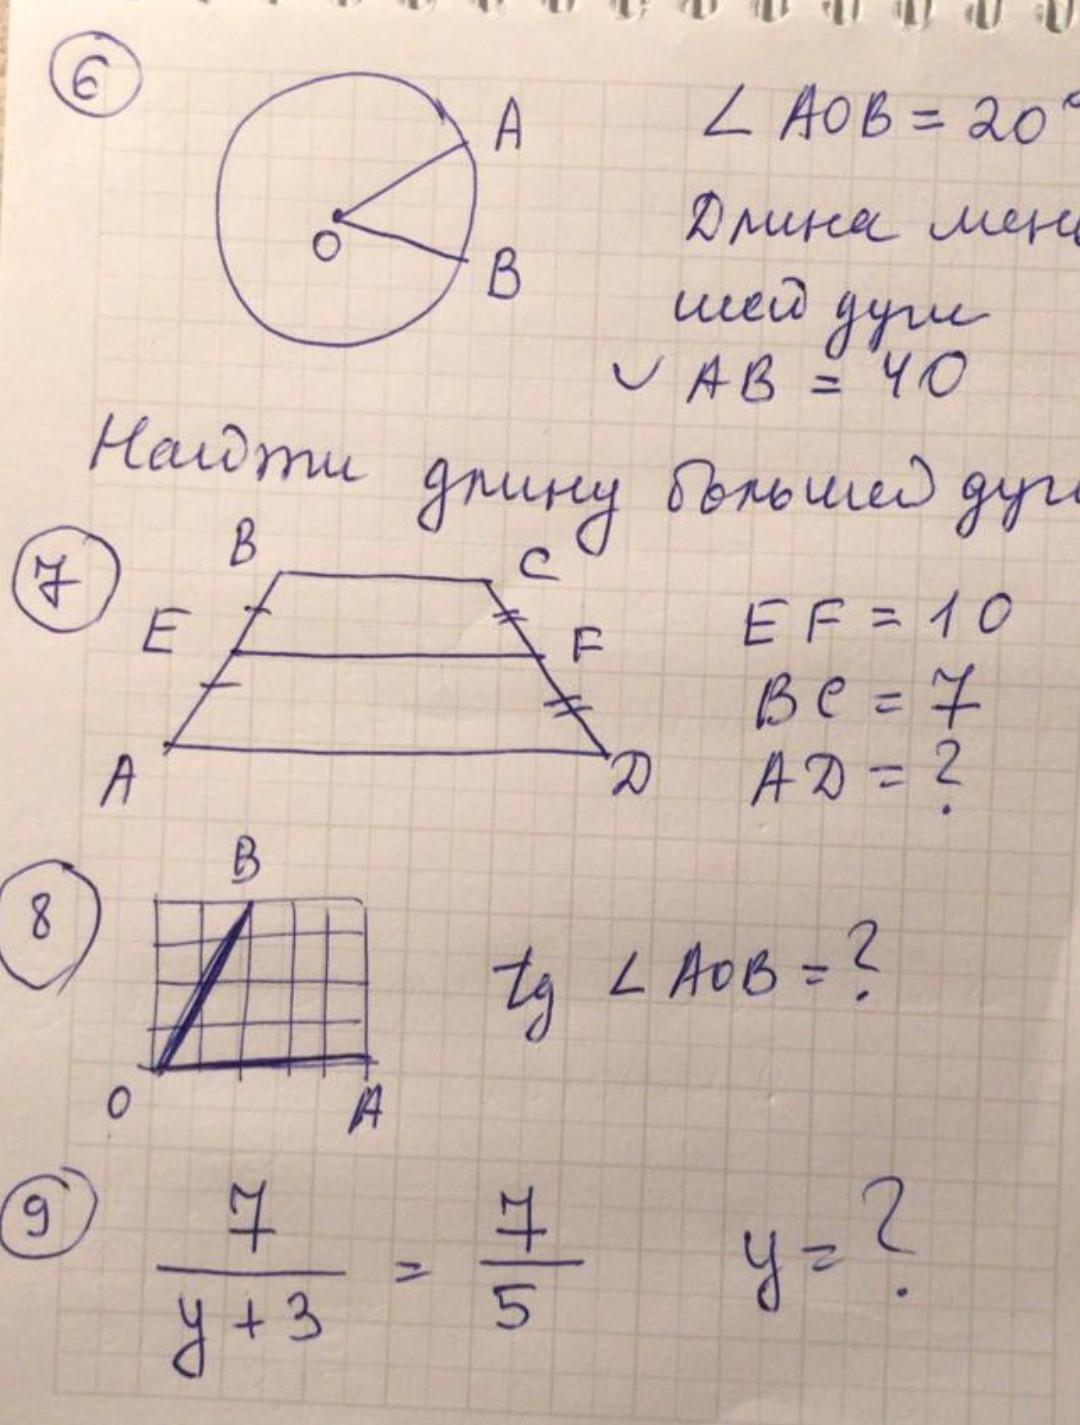 6
A
O
B
∠ AOB = 20°
Длина мень
шей дуги
◡ AB = 40
Найти длину большей дуги
7
B
C
E
F
A
D
EF = 10
BC = 7
AD = ?
8
B
O
A
tg ∠ AOB = ?
9
7/(y + 3) = 7/5
y = ?